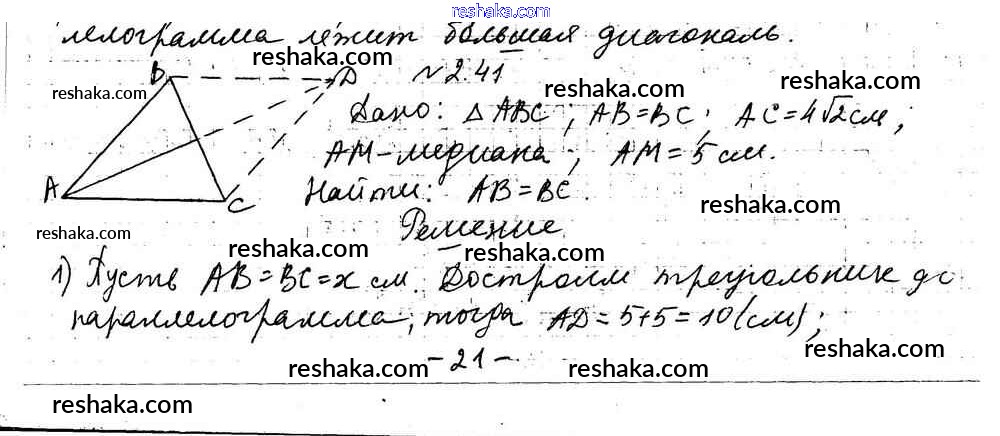 reshaka.com
лелограмма лежит большая диагональ.
reshaka.com reshaka.com
B D № 2.41
reshaka.com
Дано: △ABC; AB=BC; AC=4√2 см;
AM-медиана; AM=5 см.
A C Найти: AB=BC.
reshaka.com
Решение.
reshaka.com reshaka.com reshaka.com
1) Пусть AB=BC=x см. Достроим треугольник до
параллелограмма, тогда AD=5+5=10(см);
reshaka.com
-21-
reshaka.com reshaka.com
reshaka.com